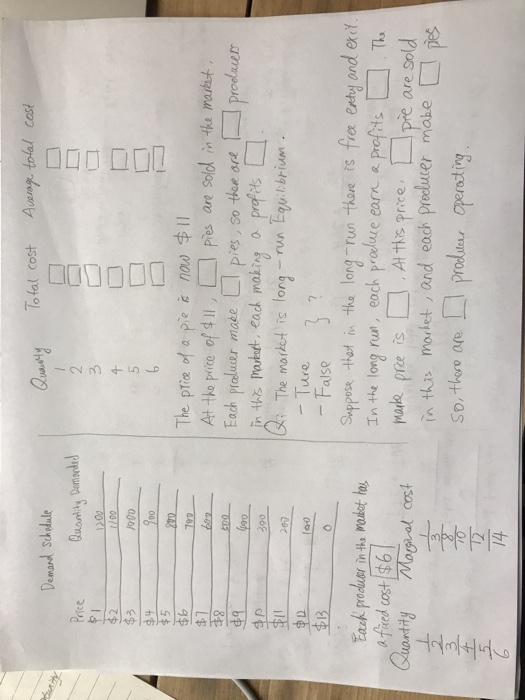 Demand Schedule
Price Quantity Demanded
$1 1200
$2 1100
$3 1000
$4 900
$5 800
$6 700
$7 600
$8 500
$9 400
$10 300
$11 200
$12 100
$13 0
Each producer in the market has
a fixed cost $6
Quantity Marginal cost
1 1
2 3
3 8
4 10
5 12
6 14
Quantity Total cost Average total cost
1
2
3
4
5
6
The price of a pie is now $11
At the price of $11, pies are sold in the market.
Each producer make pies, so there are producers
in this market, each making a profits .
Q: The market is long-run Equilibrium.
- Ture
- False } ?
Suppose that in the long-run there is free entry and exit.
In the long run, each produce earn a profits . The
mark price is . At this price, pie are sold
in this market, and each producer make pies
So, there are producer operating.